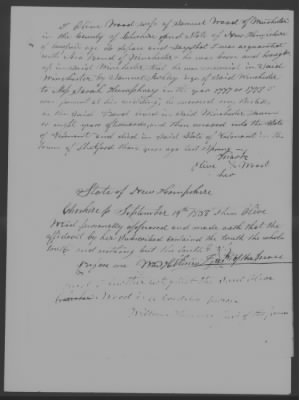 I Olive Wood wife of Samuel Wood of Winchester
in the County of Cheshire and State of New Hampshire
of lawful age do depose and say that I was acquainted
with Asa Bond of Winchester he was born and brought
up in said Winchester that he was married in said
Winchester by Samuel Ashley Esqr of said Winchester
to Miss Sarah Humphrey in the year 1777 or 1778 I
was present at his wedding, he
in said Winchester
years and then moved into the State
of Vermont and died in said State of Vermont in the
Town of Thetford three years ago last Spring
mark
Olive X Wood
her
State of New Hampshire
Cheshire Ss September 19th 1838 Then Olive
Wood personally appeared and made oath that the
affidavit by her subscribed contained the truth the whole
truth and nothing but the truth
Before me Just. of the Peace
I further certify that the said Olive
Wood is a person
William Just of the Peace